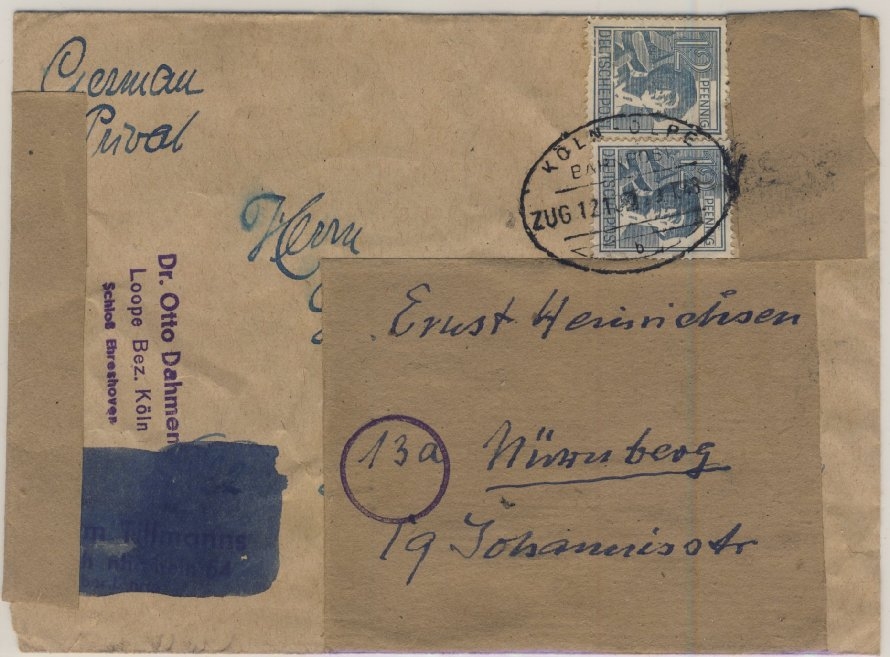 German
Privat
12 PFENNIG
DEUTSCHE POST
12 PFENNIG
DEUTSCHE POST
KÖLN OLPE
BAHNPOST
ZUG 121
b
Herrn
Ernst Heinrichsen
13a Nürnberg
19 Johannisstr
Dr. Otto Dahmen
Loope Bez. Köln
Schloß Ehreshoven
Tillmanns